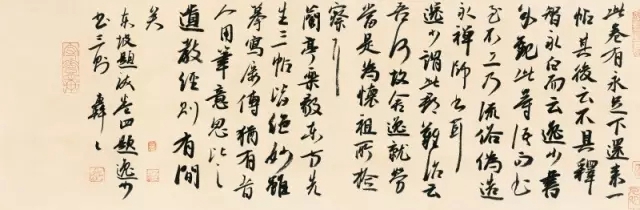 此卷有永足下還來一
帖其後云不具釋
智永白而云逸少書
觀此等語而書
不工乃流俗偽造
永禪師書耳
逸少謂此郡難治云
吾何故舍逸就勞
當是為懷祖所檢
察耳
蘭亭樂毅東方先
生三帖皆絕妙雖
摹寫屢傳猶有昔
人用筆意思比之
遺教經則有間
矣
東坡題跋卷四題逸少
書三則